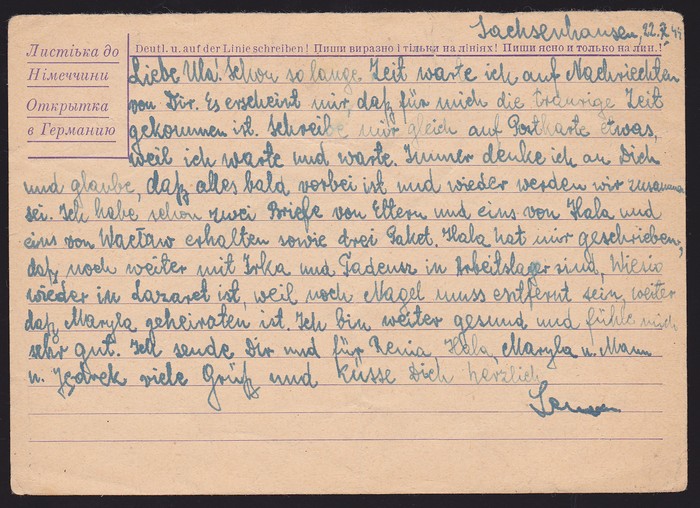 Sachsenhausen, 22.
Листівка до
Німеччини
Открытка
в Германию
Deutl. u. auf der Linie schreiben! Пиши виразно і тільки на лініях! Пиши ясно и только на лин.!
Liebe Ula! Schon so lange Zeit warte ich auf Nachriechten
von Dir. Es erscheint mir, daß für mich die traurige Zeit
gekommen ist. Schreibe mir gleich auf Postkarte etwas,
weil ich warte und warte. Immer denke ich an Dich
und glaube, daß alles bald vorbei ist und wieder werden wir zusammen
sei. Ich habe schon zwei Briefe von Eltern und eins von Hala und
eins von Wacław erhalten sowie drei Paket. Hala hat mir geschrieben,
daß noch weiter mit Irka und Tadeusz in Arbeitslager sind,
wieder in Lazaret ist, weil noch Nagel muss entfernt sein, weiter
daß Maryla geheiraten ist. Ich bin weiter gesund und fühle mich
sehr gut. Ich sende Dir und für Renia, Hela, Maryla u. Mann
u. Jędrek viele Grüß und küsse Dich herzlich